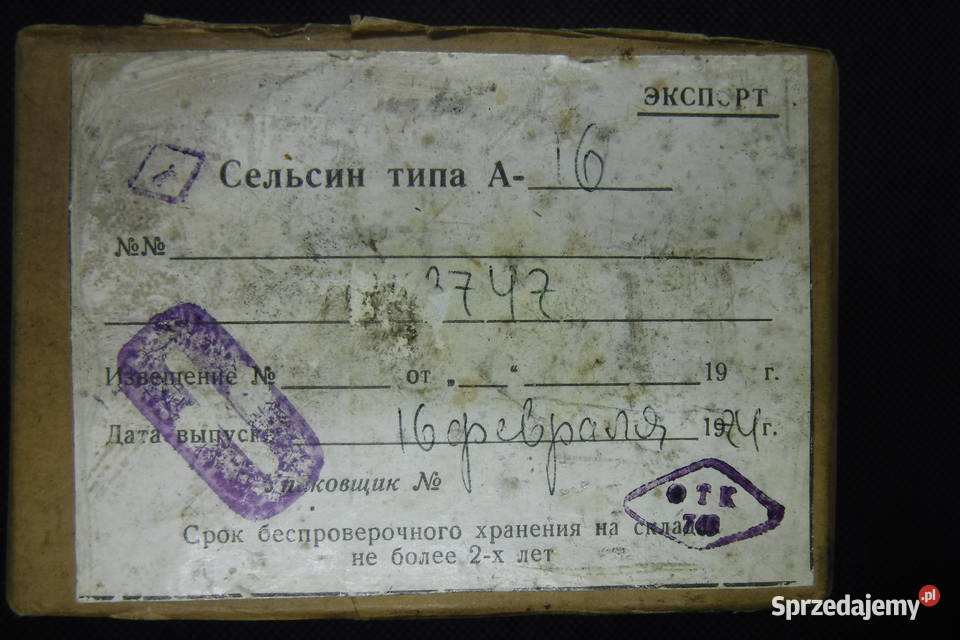 ЭКСПОРТ
Сельсин типа А- 16
№№
3747
Извещение № от „ “ 19 г.
Дата выпуска 16 февраля 1974 г.
Упаковщик №
ОТК
Срок беспроверочного хранения на складе
не более 2-х лет
Sprzedajemy.pl